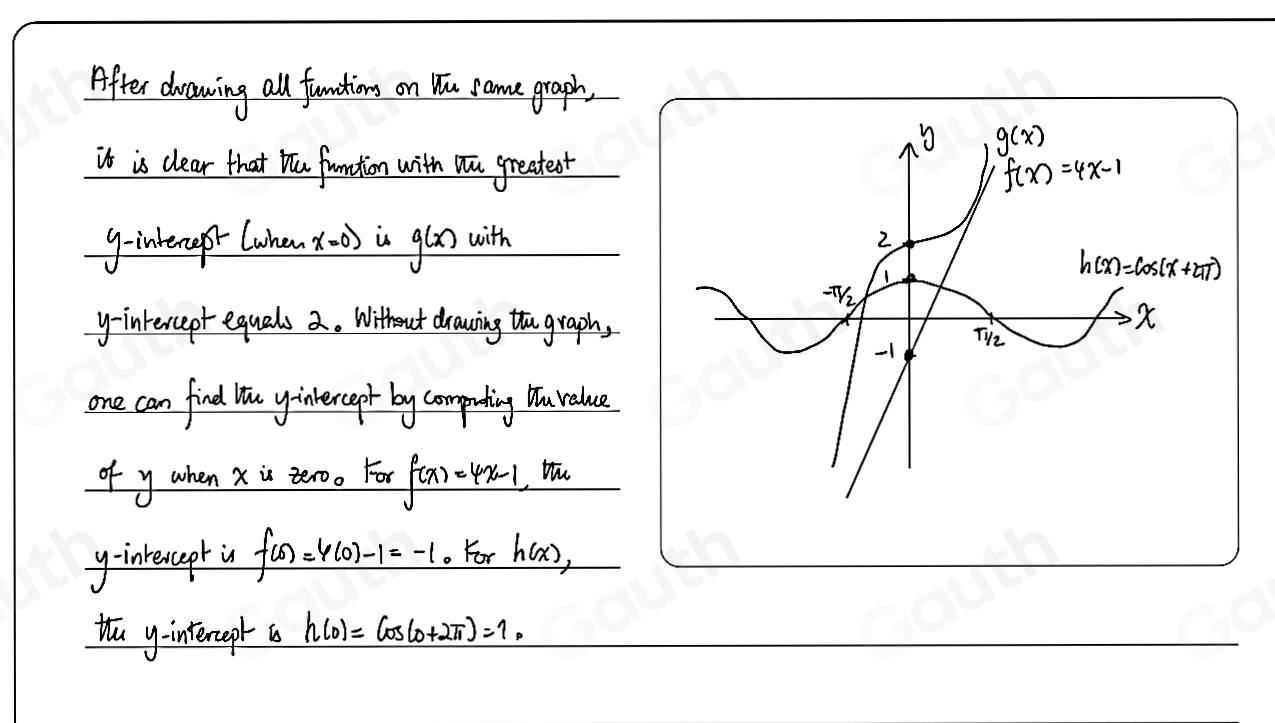 After drawing all functions on the same graph,
it is clear that the function with the greatest
y-intercept (when x=0) is g(x) with
y-intercept equals 2. Without drawing the graph,
one can find the y-intercept by computing the value
of y when x is zero. For f(x)=4x-1, the
y-intercept is f(0)=4(0)-1=-1. For h(x),
the y-intercept is h(0)=Cos(0+2π)=1.
y
g(x)
f(x)=4x-1
2
h(x)=Cos(x+2π)
1
-π/2
x
π/2
-1
Gauth